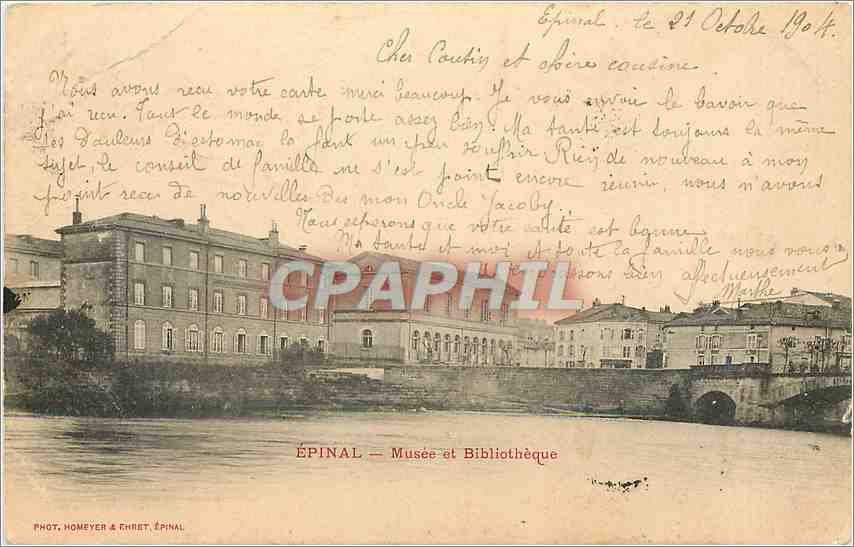 Epinal. le 21 Octobre 1904.
Cher Cousin et chère cousine.
Nous avons recu votre carte merci beaucoup. Je vous envoie le savoir que
j'ai recu. Tout le monde se porte assez bien. Ma tante est toujours la même
ses douleurs d'estomac la font un peu souffrir Rien de nouveau à mon
sujet, le conseil de famille ne s'est point encore réunir, nous n'avons
point recu de nouvelles de mon Oncle Jacoby.
Nous esperons que votre santé est bonne
Ma tante et moi et toute la famille nous vous
bien affectueusement
Marthe
CPAPHIL.COM
ÉPINAL — Musée et Bibliothèque
PHOT. HOMEYER & EHRET, ÉPINAL